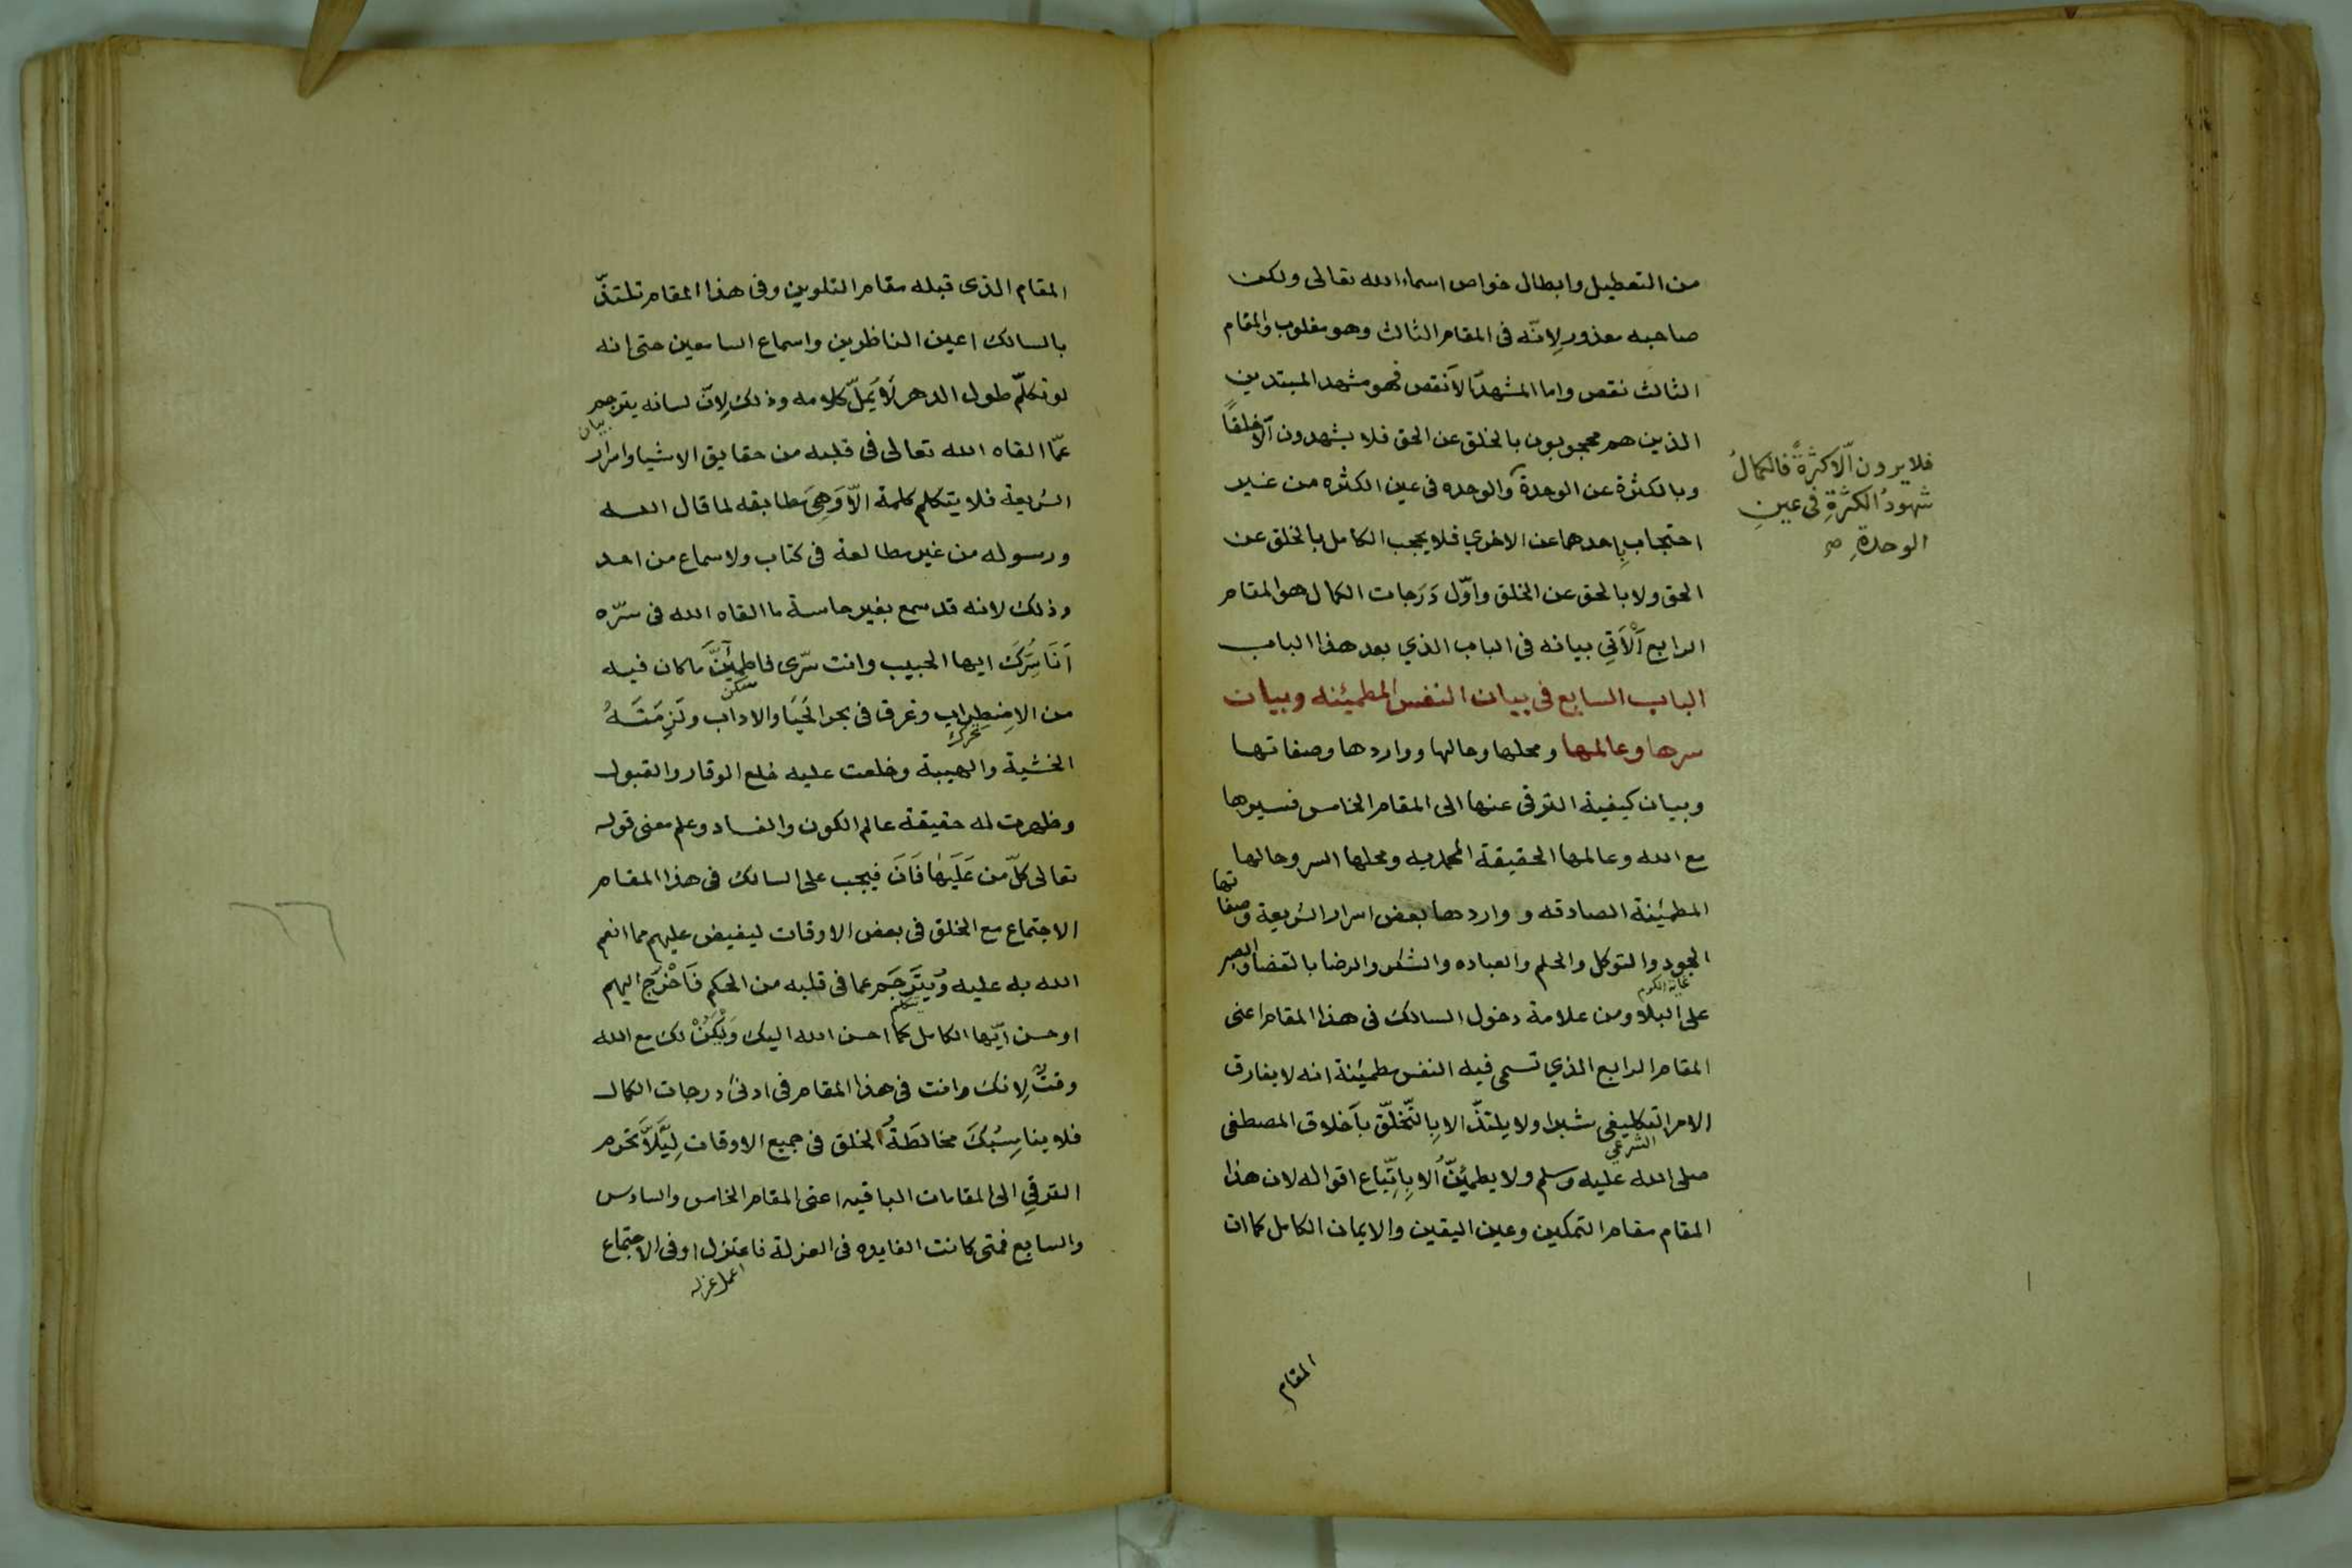 من التعطيل وابطال خواص اسماء الله تعالى ولكن
صاحبه معذور لِانّه فى المقام الثالث وهو مغلوب والمقام
الثالث نقص واما المشهد الاَنقص فهو مشهد المبتدين
الذين هم محجوبون بالخلق عن الحق فلا يشهدون اَلّا خلقًا
وبالكثرة عن الوحدة والوحده فى عين الكثره من غير
احتجاب بِاحدهما عن الاخري فلا يحجب الكامل بالخلق عن
الحق ولا بالحق عن الخلق واوّل دَرَجات الكمال هو المقام
الرابع اَلْاَتِي بيانه فى الباب الذي بعد هذا الباب
الباب السابع فى بيان النفس المطمئنه وبيان
سرها وعالمها ومحلها وحالها وواردها وصفاتها
وبيان كيفية الترقى عنها الى المقام الخامس فسيرها
مع الله وعالمها الحقيقة المحمديه ومحلها السر وحالها
المطمئنة الصادقه و واردها بعض اسرار الشريعة وصفاتها
الجود والتوكل والحلم والعباده والشكر والرضا بالقضا والصبر
غاية الكرم
على البلا ومن علامة دخول السالك فى هذا المقام اعنى
المقام الرابع الذي تسمى فيه النفس مطمئنة انه لا يفارق
الامر التكليفى شبرا ولا يلتذّ الا بِالتّخلّق بآخلاق المصطفى
الشرعي
صلى الله عليه وسلم ولا يطمئِنّ اُلا بِاِتِّباع اقواله لان هذا
المقام مقام التمكين وعين اليقين والايمان الكامل كما ان
المقام
فلا يرون اَلّا كثرةً فالكمالُ
شهودُ الكثرةِ فى عينِ
الوحدةِ صح
المقام الذى قبله مقام التلوين وفى هذا المقام تلتذّ
بالسالك اعين الناظرين واسماع السامعين حتى انه
لو تكلّم طول الدهر لَا يَملّ كلامه وذلك لِانّ لسانه يترجم
بيان
عمّا القاه الله تعالى فى قلبه من حقايق الاشيا واسرار
الشريعة فلا يتكلم كلمة الّا وَهِىَ مطابقه لما قال الله
ورسوله من غير مطالعة فى كتاب ولا سماع من احد
وذلك لانه قد سمع بغير حاسة ما القاه الله فى سرّه
اَنَا سِرّكَ ايها الحبيب وانت سّرى فاطمئنَّ ما كان فيه
سكن
من الاضطِراب وغرق فى بحر الحَيَا والاداب ولَزِمَتَهُ
تحرك
الخشية والهيبة وخلعت عليه خلع الوقار والقبول
وظهرت له حقيقة عالم الكون والفساد وعلم معنى قوله
تعالى كلّ من عَلَيَهٰا فَانَ فيجب على السالك فى هذا المقام
الاجتماع مع الخلق فى بعض الاوقات ليفيض عليهم مما انعم
الله به عليه وُيتَرجَم عما فى قلبه من الحكم فَاخْرَج اليهم
يتكلم
اوحسن ايّها الكامل كما احسن الله اليك وَلْيَكُنْ لك مع الله
وقتٌ لِانك وانت فى هذا المقام فى ادنىٰ درجات الكمال
فلا يناسِبُكَ مخالطَةُ الخلق فى جميع الاوقات لِيَلَّا تحرم
الترقيِ الى المقامات الباقيه اعنى المقام الخامس والسادس
والسابع فمتى كانت الفايده فى العزلة فاعتزل او فى الاجتماع
اعمل عزله
٦٦